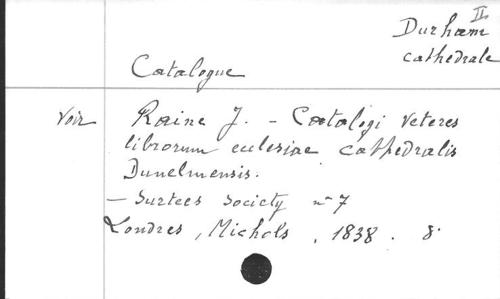 II
Durham
cathedrale
Catalogue
Voir Raine J. - Catalogi veteres
librorum eclesiae cathedralis
Dunelmensis.
- Surtees Society n° 7
Londres, Nichols, 1838. 8°